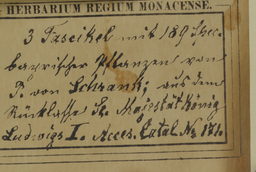 HERBARIUM REGIUM MONACENSE.
3 Fascikel mit 189 Spec.
bayrischer Pflanzen von
P. von Schrank; aus dem
Rücklasse Sr. Majestät König
Ludwigs I. Acces. Catal. No 171.